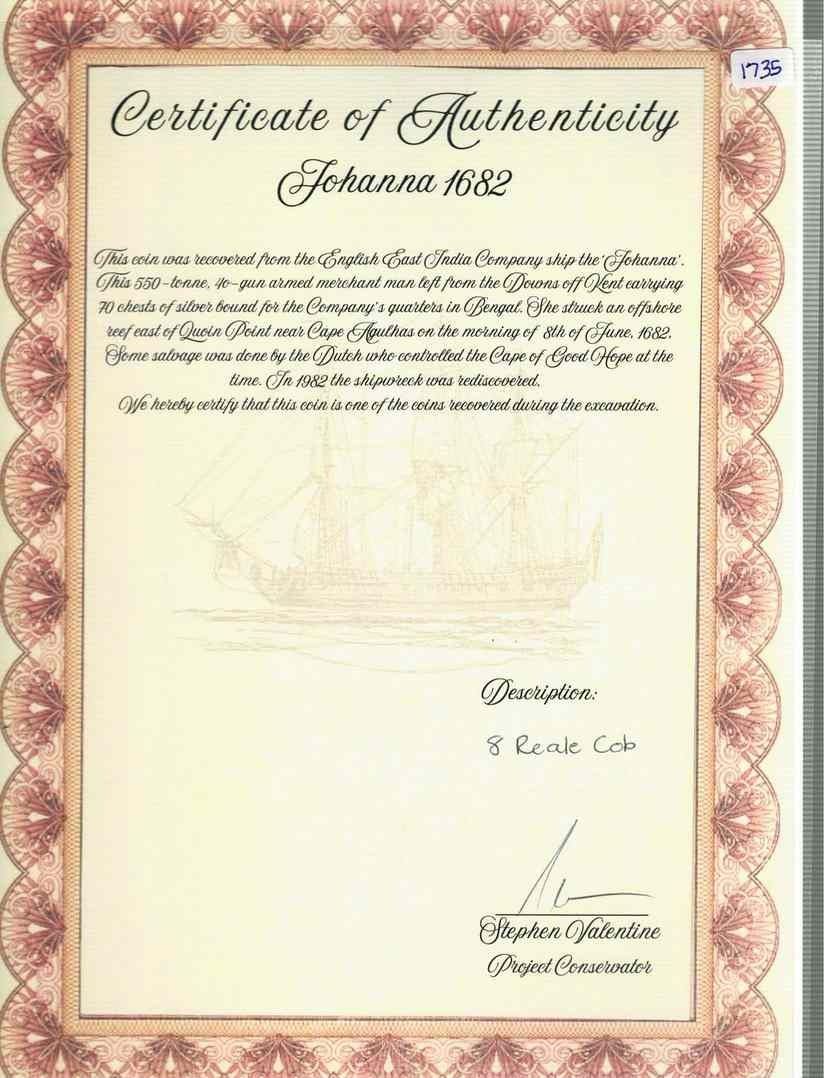 1735
Certificate of Authenticity
Johanna 1682
This coin was recovered from the English East India Company ship the 'Johanna'.
This 550-tonne, 40-gun armed merchant man left from the Downs off Kent carrying
70 chests of silver bound for the Company's quarters in Bengal. She struck an offshore
reef east of Quoin Point near Cape Agulhas on the morning of 8th of June, 1682.
Some salvage was done by the Dutch who controlled the Cape of Good Hope at the
time. In 1982 the shipwreck was rediscovered.
We hereby certify that this coin is one of the coins recovered during the excavation.
Description:
8 Reale Cob
Stephen Valentine
Project Conservator